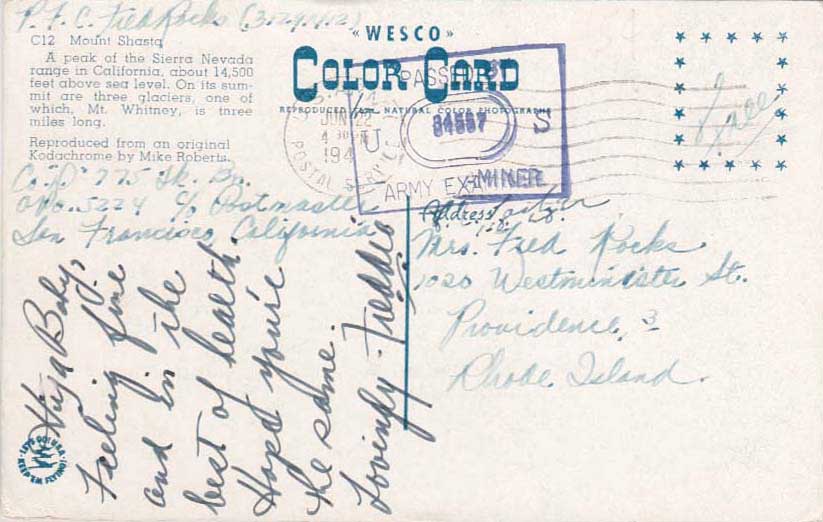 P.F.C. Fred Rocks
C12 Mount Shasta
A peak of the Sierra Nevada
range in California, about 14,500
feet above sea level. On its sum-
mit are three glaciers, one of
which, Mt. Whitney, is three
miles long.
Reproduced from an original
Kodachrome by Mike Roberts.
Co. "D" 775 Tk. Bn.
APO. 5224 c/o Postmaster
San Francisco, California
Hiya Baby,
Feeling fine
and in the
best of health.
Hope you're
the same.
Lovingly - Freddie
LET'S GO! U.S.A.
KEEP 'EM FLYING!
"WESCO"
COLOR CARD
REPRODUCED FROM NATURAL COLOR PHOTOGRAPHS
JUN 22
4 30 PM
194
POSTAL SERVICE
PASSED
U S
34567
ARMY EXAMINER
Free
Address
Mrs. Fred Rocks
1020 Westminister St.
Providence, 3
Rhode Island.